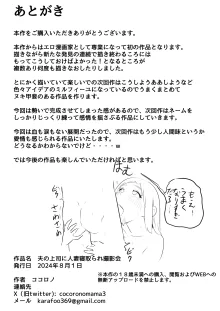 あとがき
本作をご購入いただきありがとうございます。
本作からはエロ漫画家として専業になって初の作品となります。
描きながら新たな発見の連続で描き終わるころには
もってこうしておけばよかった！となるところが
連数あり何度も描きなおしたりしました。
とにかく描いていて楽しいので次回作はこうしようああしようなど
色々アイデアのミルフィーユになっているのでうまくまとめて
ヌキ甲斐のある作品を作ります。
今回は勢いで完成させてしまった感があるので、次回作はネームを
しっかりじっくり練って感情を揺さぶる作品にしていきます。
今回は血も涙もない展開だったので、次回作はもう少し人間味というか
愛情も感じられる作品にいたします。
どうなるかわからないけど・・・・ｗ
では今後の作品も楽しんでいただければと思います。
はむ
作品名　夫の上司に人妻寝取られ撮影会
発行日　2024年８月１日
作者　ココロノ
連絡先
X（旧twitter）：cocoronomama3
メール　karafoo369@gmail.com
※本作の１８歳未満への購入、閲覧およびWEBへの
無断アップロードを禁止します。